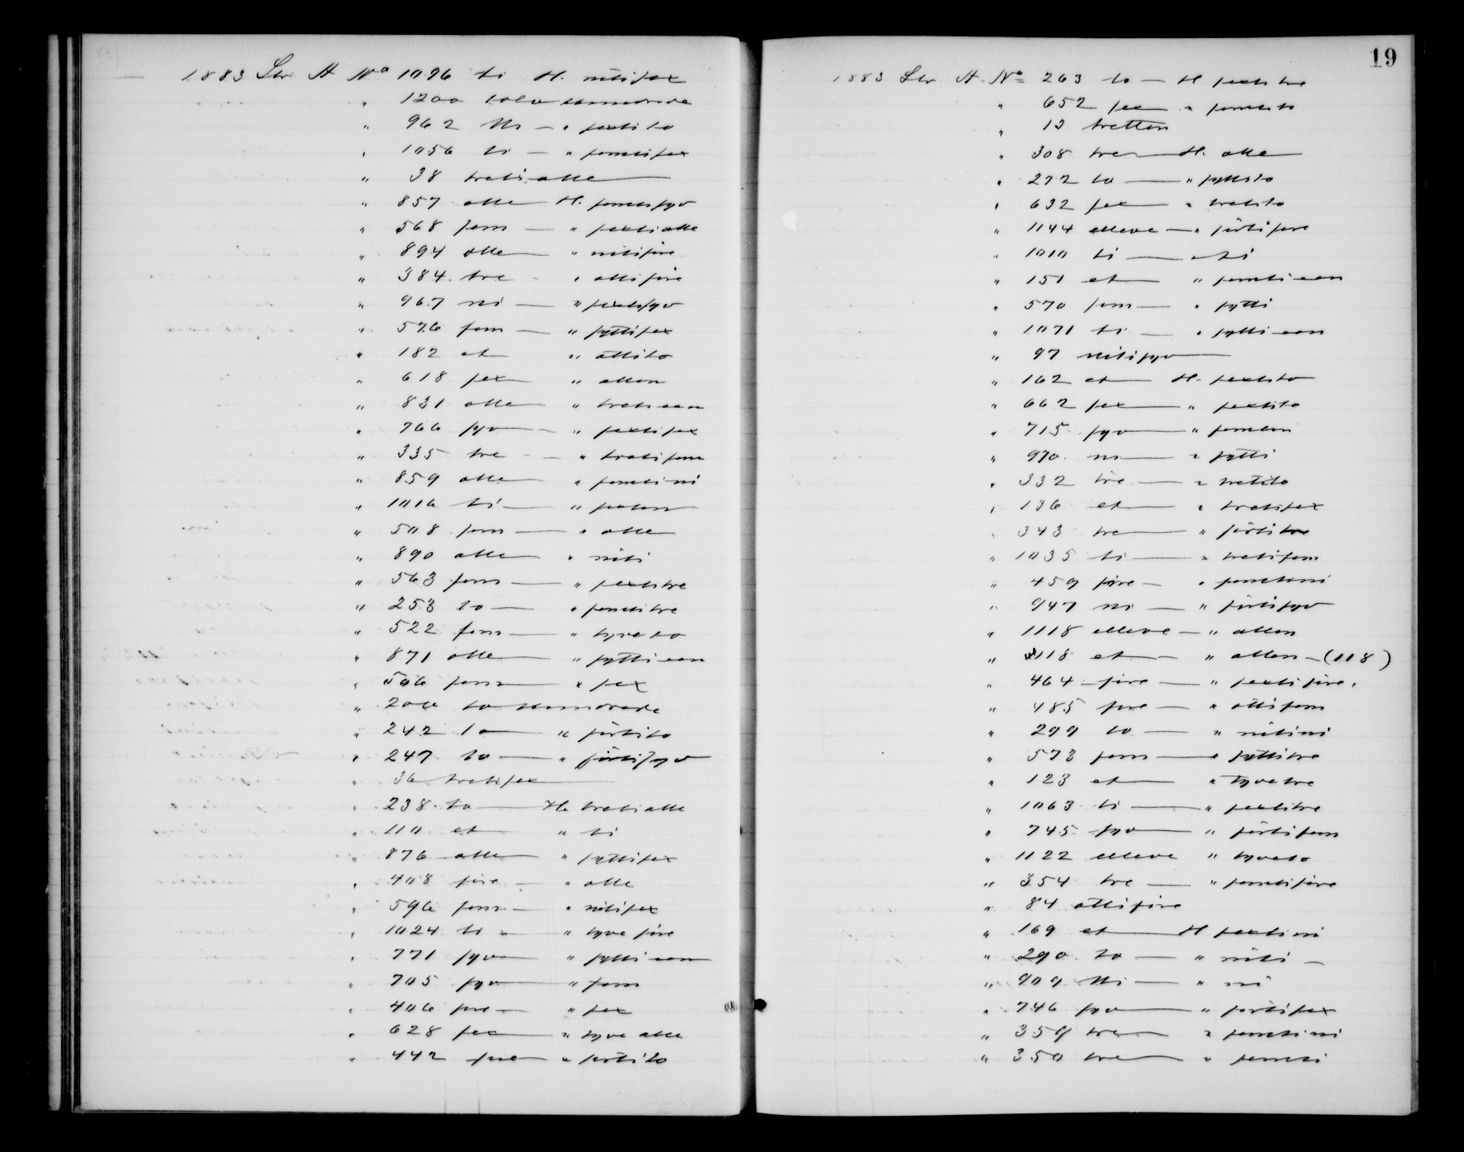 1883 Ser A No 1096 ti H. nitisex
" 1200 tolv hundrede
" 962 Ni — " sexti to
" 1056 ti — " femtisex
" 38 tretiotte
" 857 otte H. femtisyv
" 568 fem — " sextiotte
" 894 otte " nitifire
" 384 tre " ottifire
" 967 ni — " sextisyv
" 576 fem — " syttisex
" 182 et " ottito
" 618 sex " atten
" 831 otte " tretieen
" 766 syv — " sextisex
" 335 tre — " tretifem
" 859 otte " femti ni
" 1016 ti — " sexten
" 508 fem — " otte
" 890 otte " niti
" 563 fem — " sextitre
" 253 to — " femtitre
" 522 fem — " tyveto
" 871 otte " sytti een
" 506 fem " sex
" 200 to hundrede
" 242 to " förtito
" 247 to — " förtisyv
" 36 tretisex
" 238 to — H tretiotte
" 110 et " ti
" 876 otte " syttisex
" 408 fire — " otte
" 596 fem — " nitisex
" 1024 ti " tyve fire
" 771 syv " sytti een
" 705 syv " fem
" 406 fire — " sex
" 628 sex " tyve otte
" 442 fire " förtito
19
1883 Ser A. No 263 to — H sextitre
" 652 sex " femtito
" 13 tretten
" 308 tre H. otte
" 272 to — " syttito
" 632 sex " tretito
" 1144 elleve — " förtifire
" 1010 ti — " ti
" 151 et " femti een
" 570 fem — " sytti
" 1071 ti — " sytti een
" 97 nitisyv
" 162 et H. sextito
" 662 sex " sextito
" 715 syv " femten
" 970 ni — " sytti
" 332 tre — " tretito
" 136 et " tretisex
" 343 tre " förtitre
" 1035 ti — " tretifem
" 459 fire — " femtini
" 947 ni — " förtisyv
" 1118 elleve — " atten
" 118 et — " atten — (118)
" 464 fire — " sextifire.
" 485 fire — " ottifem
" 299 to — " nitini
" 573 fem — " syttitre
" 123 et " tyvetre
" 1063 ti — " sextitre
" 745 syv " förtifem
" 1122 elleve " tyveto
" 354 tre — " femtifire
" 84 ottifire
" 169 et H sextini
" 290 to — " niti —
" 909 Ni — " ni
" 746 syv " förtisex
" 359 tre " femtini
" 350 tre " femti